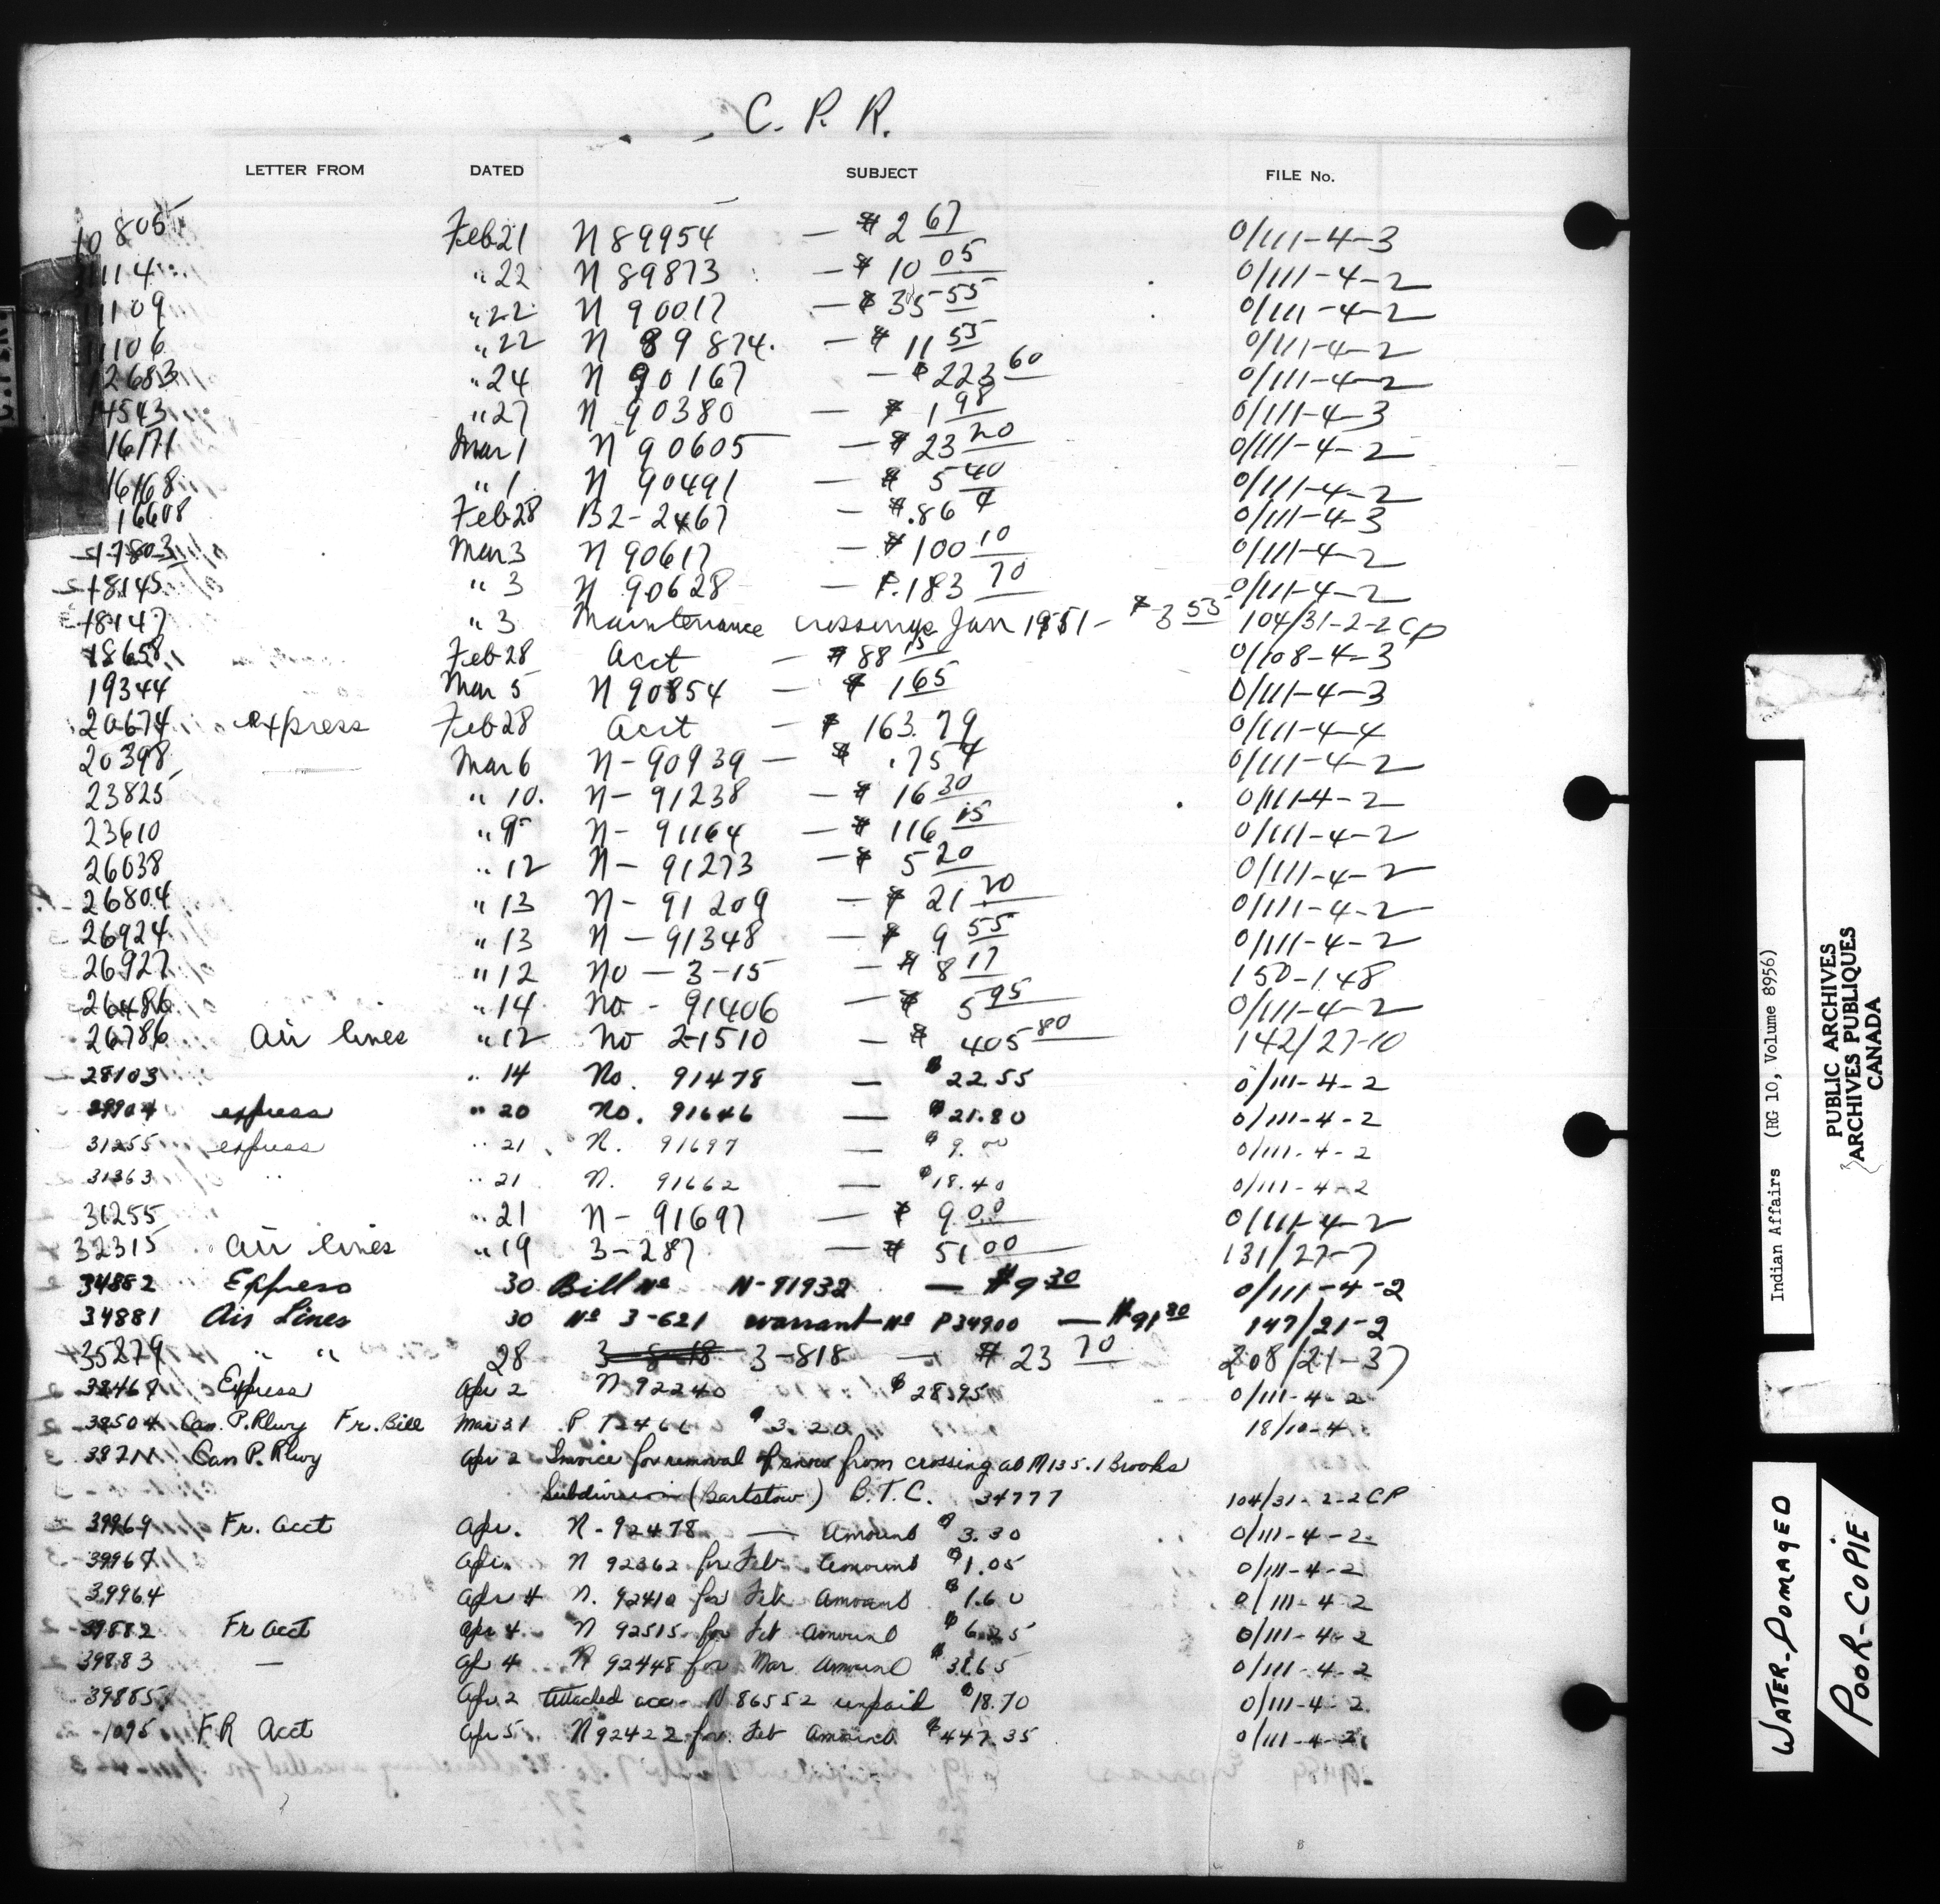 C. P. R.
LETTER FROM DATED SUBJECT FILE No.
10805 Feb 21 N 89954 — $2 67 0/111-4-3
11114 " 22 N 89873 — $ 10 05 0/111-4-2
11109 " 22 N 90017 — $ 35 55 0/111-4-2
11106 " 22 N 89874. — $ 11 55 0/111-4-2
12683 " 24 N 90167 — $ 223 60 0/111-4-2
14543 " 27 N 90380 — $ 1 98 0/111-4-3
16171 Mar 1 N 90605 — $ 23 20 0/111-4-2
16168 " 1 N 90491 — $ 5 40 0/111-4-2
16608 Feb 28 B2-2467 — $.86 ¢ 0/111-4-3
17803 Mar 3 N 90617 — $ 100 10 0/111-4-2
18145 " 3 N 90628 — $.183 70 0/111-4-2
18147 " 3 Maintenance crossings Jan 1951 - $ 3 55 104/31-2-2 CP
18658 Feb 28 Acct — $ 88 15 0/108-4-3
19344 Mar 5 N 90854 — $ 1 65 0/111-4-3
20674 express Feb 28 Acct — $ 163.79 0/111-4-4
20398 Mar 6 N-90939 — $ .75 ¢ 0/111-4-2
23825 " 10. N- 91238 — $ 16 30 0/111-4-2
23610 " 9 N- 91164 — $ 116 15 0/111-4-2
26038 " 12 N- 91273 — $ 5 20 0/111-4-2
26804 " 13 N- 91209 — $ 21 20 0/111-4-2
26924 " 13 N- 91348 — $ 9 55 0/111-4-2
26927 " 12 No - 3-15 — $ 8 17 150-148
26486 " 14 No. - 91406 — $ 5 95 0/111-4-2
26786 Air lines " 12 No 2-1510 — $ 405 80 142/27-10
28103 " 14 No. 91478 — $22.55 0/111-4-2
29904 express " 20 No. 91646 — $21.80 0/111-4-2
31255 express " 21 N. 91697 — $9.00 0/111-4-2
31363 " " 21 N. 91662 — $18.40 0/111-4-2
31255 " 21 N- 91697 — $ 9.00 0/111-4-2
32315 Air lines " 19 3-287 — $ 51 00 131/27-7
34882 Express 30 Bill No N-91932 — $9 30 0/111-4-2
34881 Air Lines 30 No 3-621 warrant No P34900 — $91 80 147/21-2
35879 " " 28 3-818 3-818 — $ 23 70 208/21-37
38468 Express Apr 2 N 92240 $28.95 0/111-4-2
38504 Can. P. Rlwy Fr. Bill Mar 31 P 72466 $3.20 18/10-4
Can P. Rlwy Apr 2 Invoice for removal of snow from crossing at M135.1 Brooks
Subdivision (Bartstow) B.T.C. 34777 104/31-2-2 CP
39969 Fr. Acct Apr. N-92478 — Amount $3.30 0/111-4-2
39967 Apr. N 92362 for Feb. Amount $1.05 0/111-4-2
39964 Apr 4 N. 92410 for Feb Amount $1.60 0/111-4-2
39882 Fr Acct Apr 4 N 92515 for Feb Amount $6.25 0/111-4-2
39883 — Ap 4 N 92448 for Mar Amount $3.65 0/111-4-2
39885 Apr 2 Attached acc- N 86552 unpaid $18.70 0/111-4-2
1095 FR Acct Apr 5 N92422 for Feb Amount $447.35 0/111-4-2
8
Indian Affairs (RG 10, Volume 8956)
PUBLIC ARCHIVES
ARCHIVES PUBLIQUES
CANADA
WATER-DOMAGED
POOR-COPIE